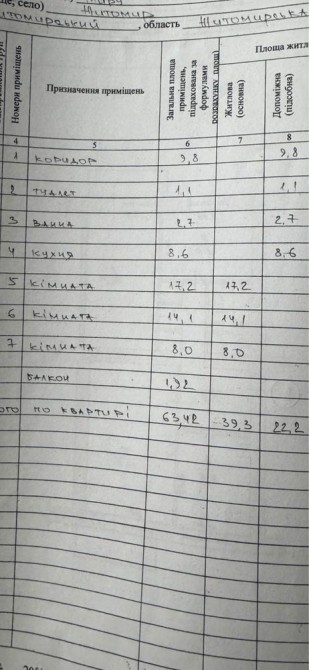 село) Житомир
Житомирський, область Житомирська
Номери приміщень
Призначення приміщень
Загальна площа приміщень, підрахована за формулами розрахунку площі
Площа житл
Житлова (основна)
Допоміжна (підсобна)
4 5 6 7 8
1 коридор 9,8 9,8
2 туалет 1,1 1,1
3 ванна 2,7 2.7
4 кухня 8,6 8,6
5 кімната 17,2 17,2
6 кімната 14,1 14,1
7 кімната 8,0 8,0
балкон 1,92
ого по квартирі 63,42 39,3 22,2